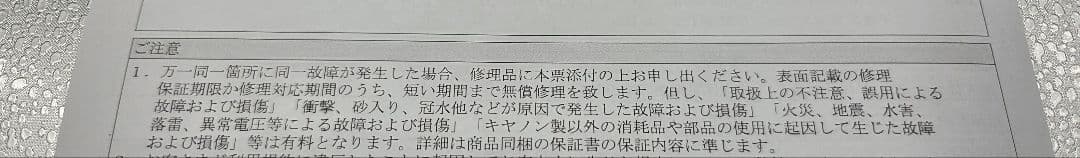 ご注意
1．万一同一箇所に同一故障が発生した場合、修理品に本票添付の上お申し出ください。表面記載の修理
保証期限か修理対応期間のうち、短い期間まで無償修理を致します。但し、「取扱上の不注意、誤用による
故障および損傷」「衝撃、砂入り、冠水他などが原因で発生した故障および損傷」「火災、地震、水害、
落雷、異常電圧等による故障および損傷」「キヤノン製以外の消耗品や部品の使用に起因して生じた故障
および損傷」等は有料となります。詳細は商品同梱の保証書の保証内容に準じます。